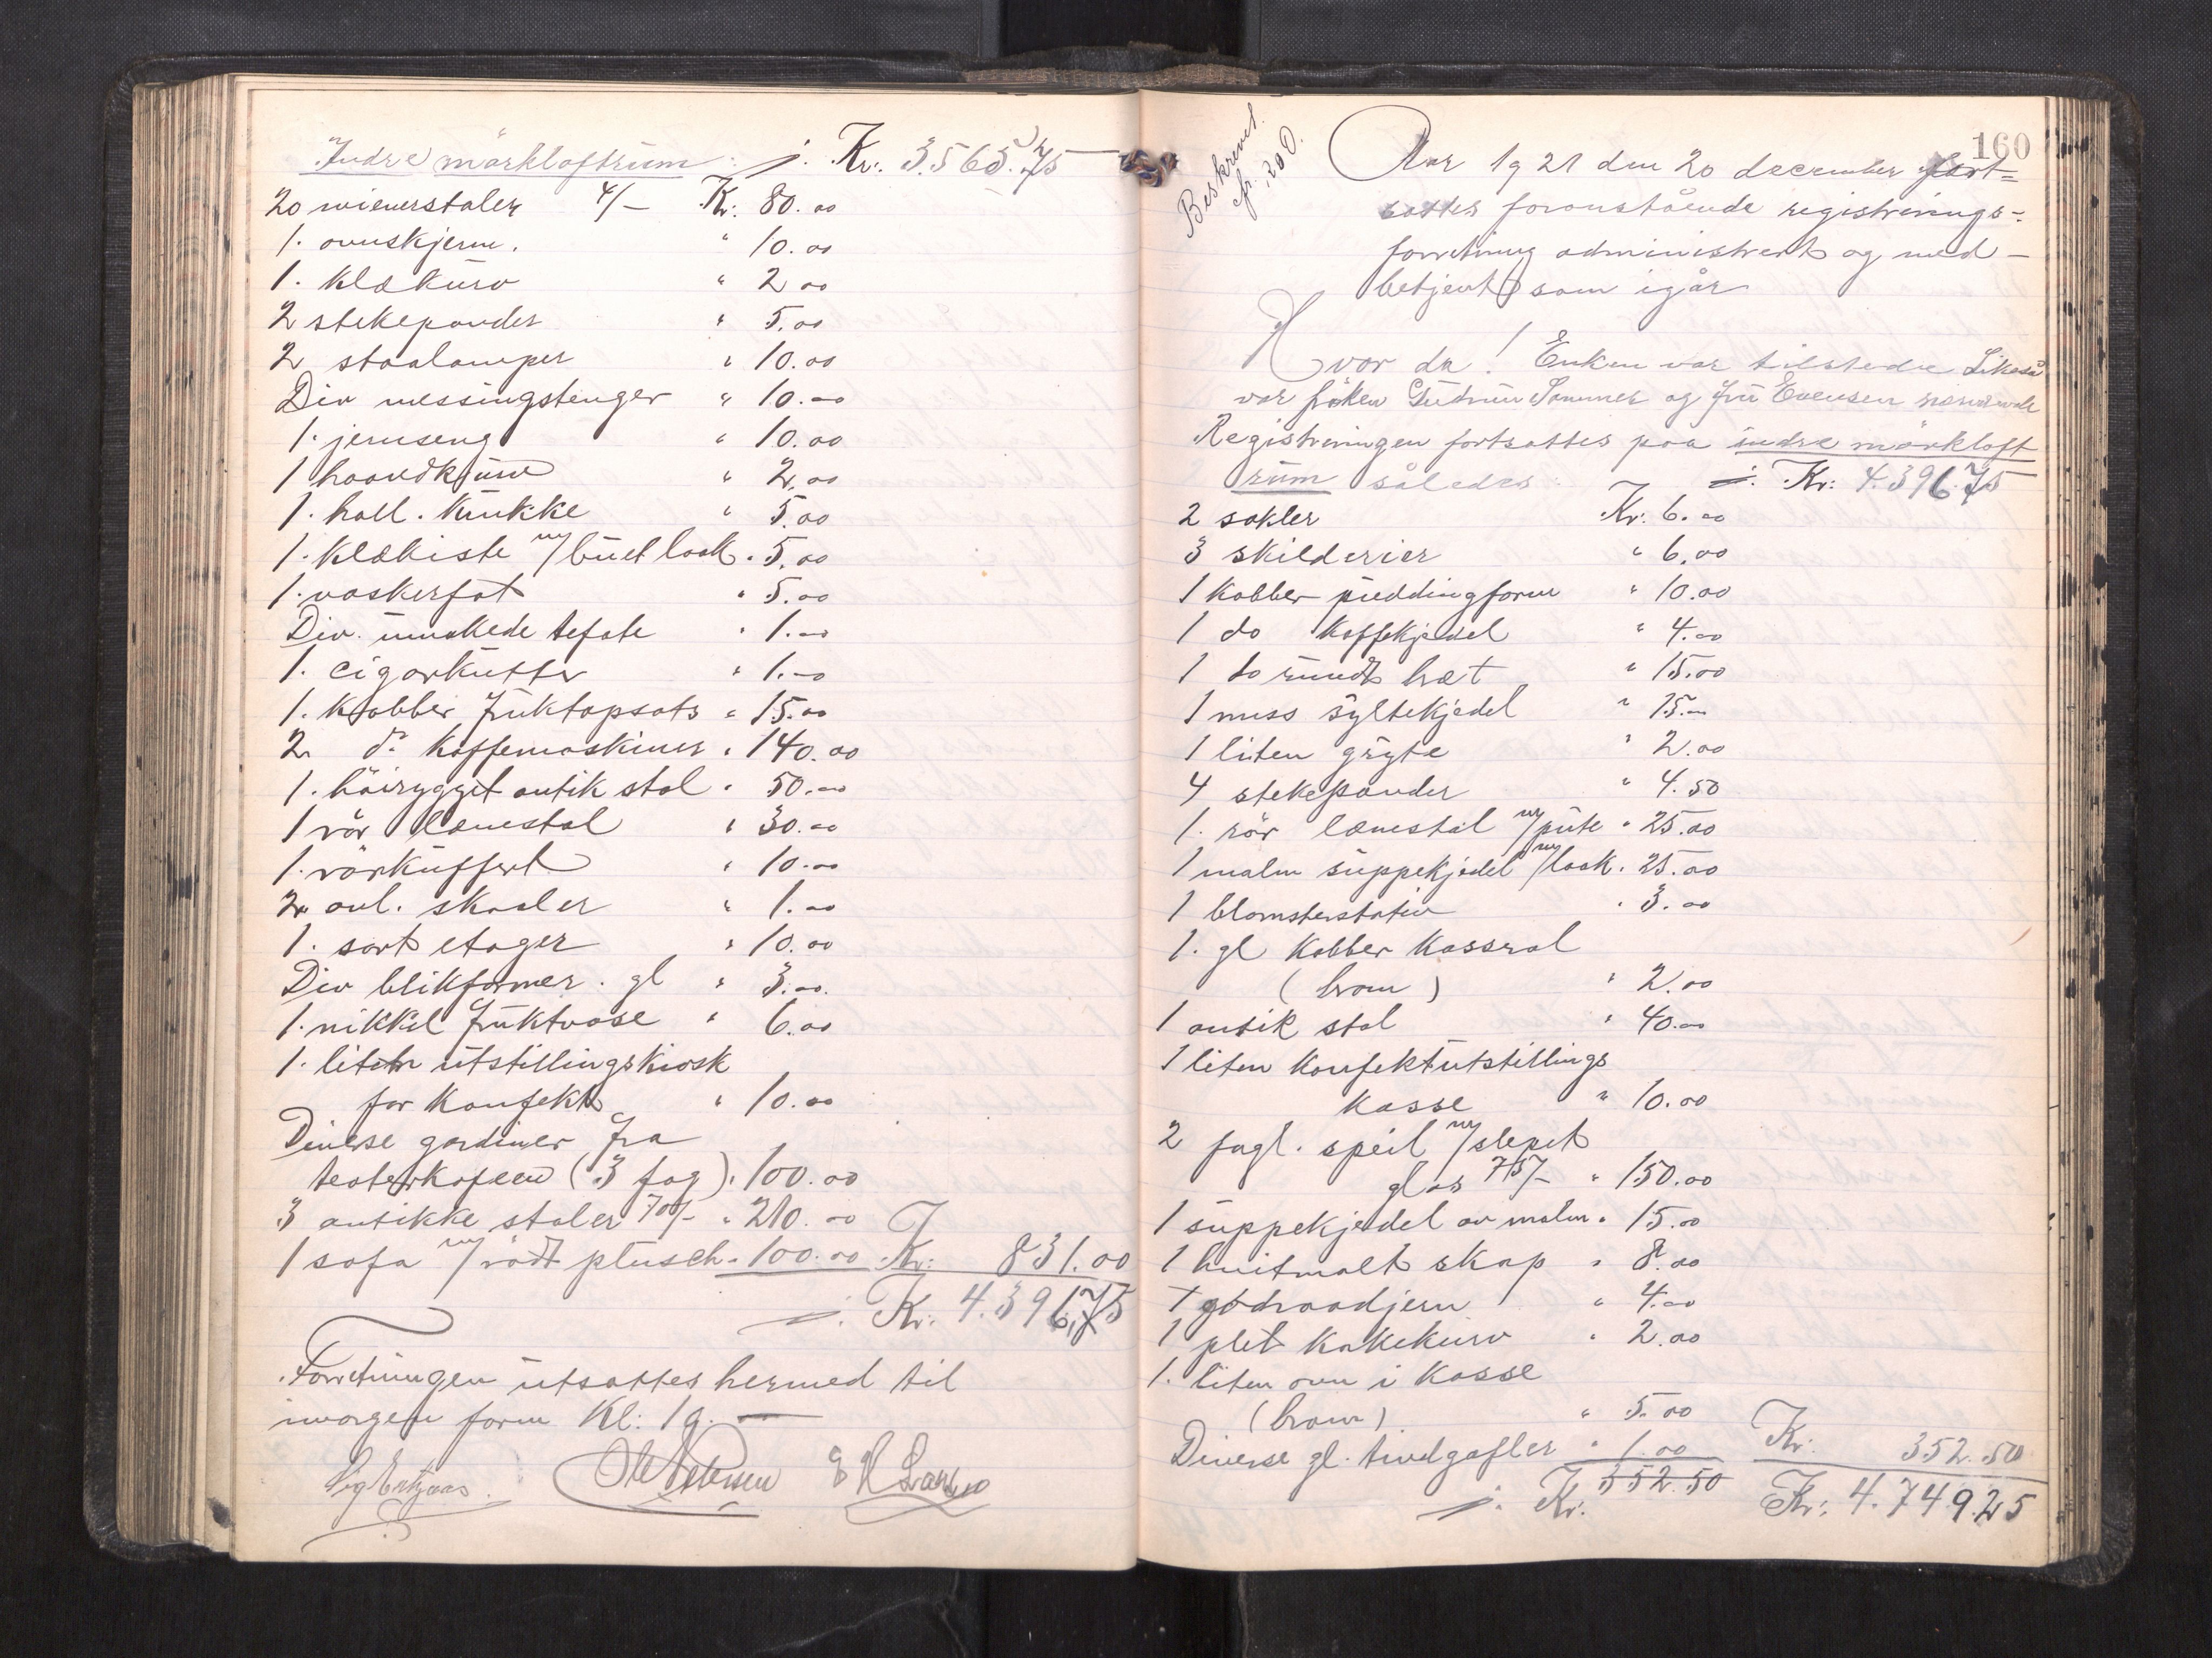 Indre mörkloftrum ./. Kr. 3.565.75
20 wienerstoler 4/- Kr: 80.00
1. ovnskjerm. " 10.00
1. klækurv " 2 00
2 stekepander " 5.00
2 staalamper " 10.00
Div messingstenger " 10.00
1. jernseng " 10.00
1 haandkurv " 2.00
1. holl. krukke " 5.00
1. klækiste m/buet laak " 5.00
1. vaskerfat " 5.00
Div. umakede tefate " 1.00
1. cigarkutter " 1.00
1. kobber fruktopsats " 15.00
2 do kaffemaskiner " 140.00
1. höirygget antik stol " 50.00
1 rör lænestol " 30.00
1. rörkuffert " 10.00
2 ovl. skaaler " 1.00
1. sort etager " 10.00
Div blikformer. gl " 3.00.
1. nikkel fruktvase " 6.00
1. liten utstillingskiosk
for konfekt " 10.00
Diverse gardiner fra
teaterkafeen (3 fag) " 100.00
3 antikke stoler 70/- " 210.00
1 sofa m/rödt plusch " 100.00 Kr: 831.00
./. Kr: 4.396,75
Forretningen utsattes hermed til
imorgen form Kl: 10.
Ole Petersen
160
Beskrevet.
Aar 1921 den 20 december fort=
sattes foranstående registrerings-
forretning administrert og med-
betjent som igår
Hvor da! Enken var tilstede Likeså
var fröken Gudrun Sommer og fru Evensen nærværende
Registreringen fortsattes paa indre mörkloft
rum således: ./. Kr: 4.396.75
2 sokler Kr. 6.00
3 skilderier " 6.00
1 kobber puddingform " 10.00
1 do kaffekjedel " 4.00
1 do rundt bræt " 15.00
1 mess syltekjedel " 15.00
1 liten gryte " 2.00
4 stekepander " 4.50
1. rör lænestol m/pute " 25.00
1 malm suppekjedel m/laak " 25.00
1 blomsterstativ " 3.00
1. gl kobber kasserol
(brom) " 2.00
1 antik stol " 40.00
1 liten konfektutstillings
kasse " 10.00
2 fagl. speil m/slepet
glas 75/- " 150.00
1 suppekjedel av malm " 15.00
1 hvitmalt skap " 8.00
1 godraadjern " 4.00
1 plet kakekurv " 2.00
1. liten ovn i kasse
(brom) " 5.00
Diverse gl. tindgafler " 1.00 Kr: 352.50
./. Kr: 352.50 Kr: 4.749.25